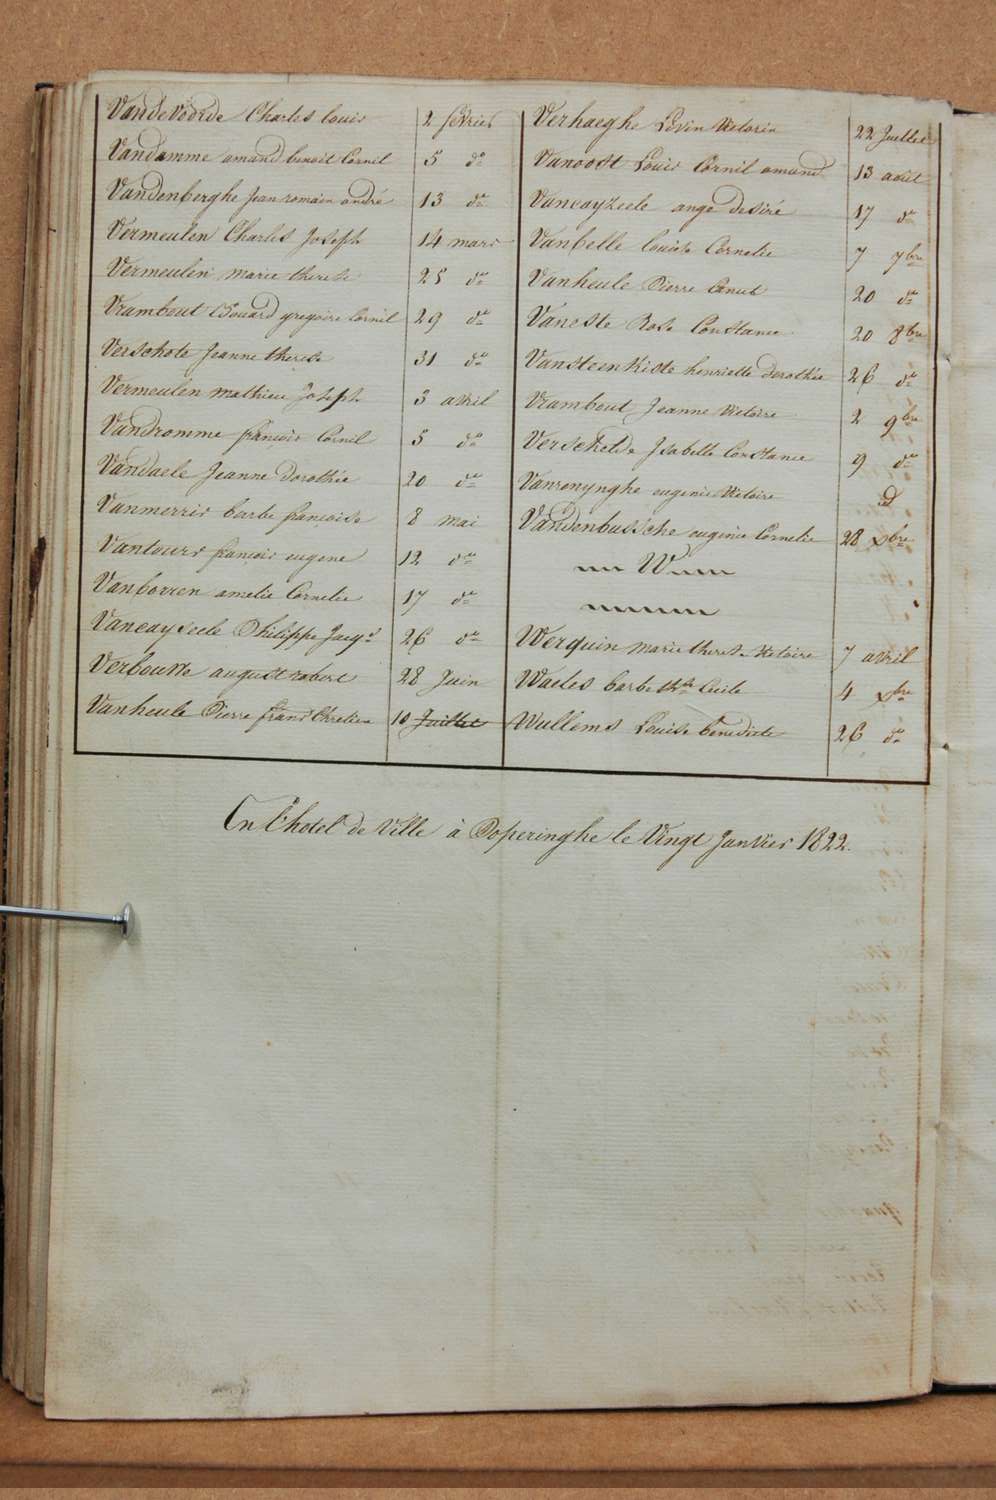 Vandevoorde Charles Louis 2 fevrier
Vandamme amand benoit Cornil 5 do
Vandenberghe Jean romain andré 13 do
Vermeulen Charles Joseph 14 mars
Vermeulen marie therese 25 do
Vrambout Edouard gregoire Cornil 29 do
Verschote Jeanne therese 31 do
Vermeulen mathieu Joseph 3 avril
Vandromme francois Cornil 5 do
Vandaele Jeanne Dorothée 20 do
Vanmerris barbe francoise 8 mai
Vantours francois eugene 12 do
Vanborren amelie Cornelie 17 do
Vancayseele Philippe Jacqs 26 do
Verbouw august robert 28 Juin
Vanheule Pierre Chretien 10 Juillet
Verhaeghe Livin Victorin 22 Juillet
Vanoost Louis Cornil amand 13 août
Vancayzeele ange desiré 17 do
Vanbelle Louise Cornelie 7 7bre
Vanheule Pierre Canut 20 do
Vaneste Rose Constance 20 8bre
Vansteenkiste henriette dorothée 26 do
Vrambout Jeanne Victoire 2 9bre
Verschelde Isabelle Constance 9 do
Vanrenynghe eugenie Victoire d
Vandenbussche eugenie Cornelie 28 xbre
W
Werquin marie therese Victoire 7 avril
Waeles barbe thse Cecile 4 xbre
Wullems Louise benedicte 26 do
En l'hotel de Ville à Poperinghe le Vingt Janvier 1822.